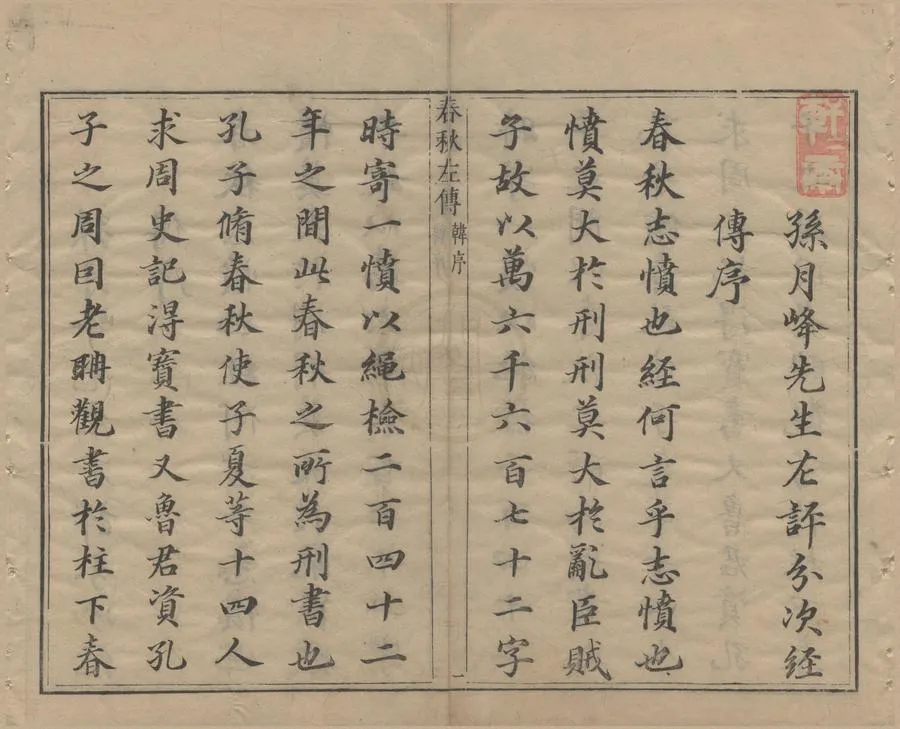 孫月峰先生左評分次經
傳序
春秋志憤也経何言乎志憤也
憤莫大於刑刑莫大於亂臣賊
子故以萬六千六百七十二字
春秋左傳 韓序 一
時寄一憤以繩檢二百四十二
年之間此春秋之所為刑書也
孔子脩春秋使子夏等十四人
求周史記得寶書又魯君資孔
子之周回老聃觀書於柱下春